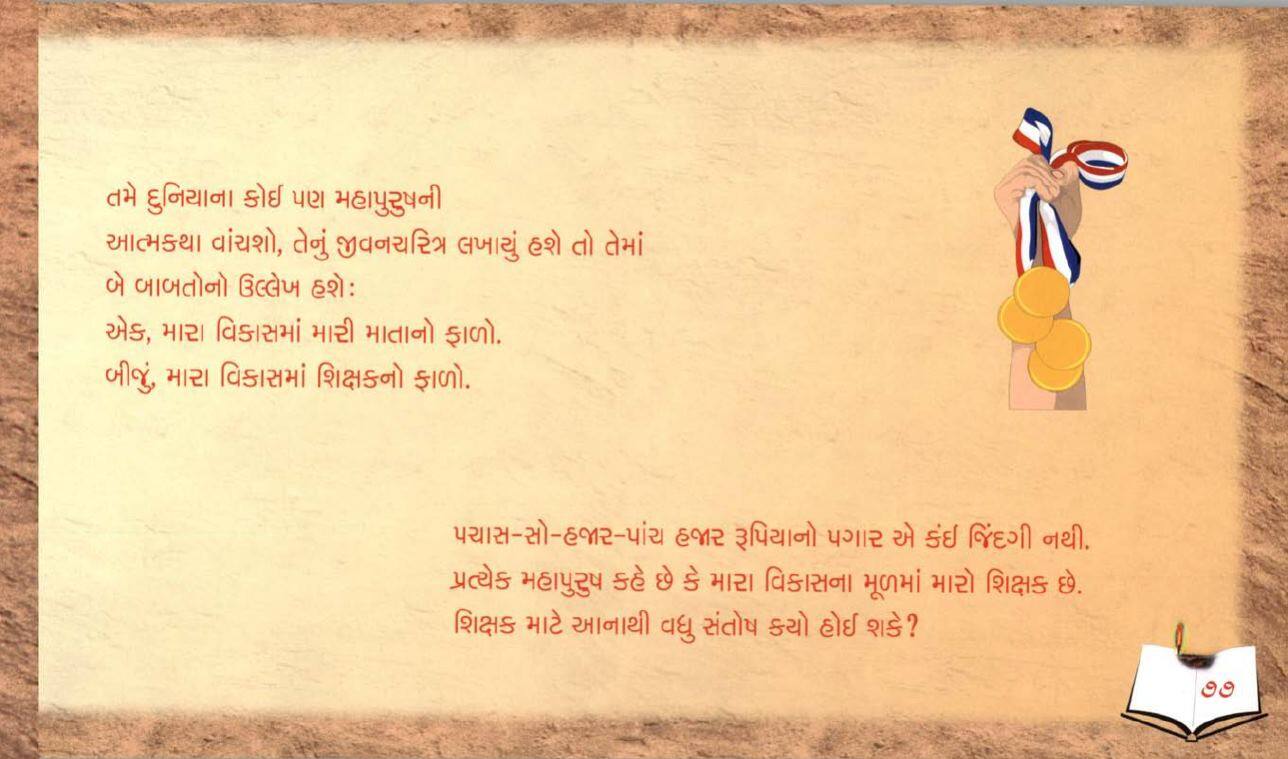 તમે દુનિયાના કોઈ પણ મહાપુરુષની
આત્મકથા વાંચશો, તેનું જીવનચરિત્ર લખાયું હશે તો તેમાં
બે બાબતોનો ઉલ્લેખ હશે:
એક, મારા વિકાસમાં મારી માતાનો ફાળો.
બીજું, મારા વિકાસમાં શિક્ષકનો ફાળો.
પચાસ-સો-હજાર-પાંચ હજાર રૂપિયાનો પગાર એ કંઈ જિંદગી નથી.
પ્રત્યેક મહાપુરુષ કહે છે કે મારા વિકાસના મૂળમાં મારો શિક્ષક છે.
શિક્ષક માટે આનાથી વધુ સંતોષ કયો હોઈ શકે?
૭૭